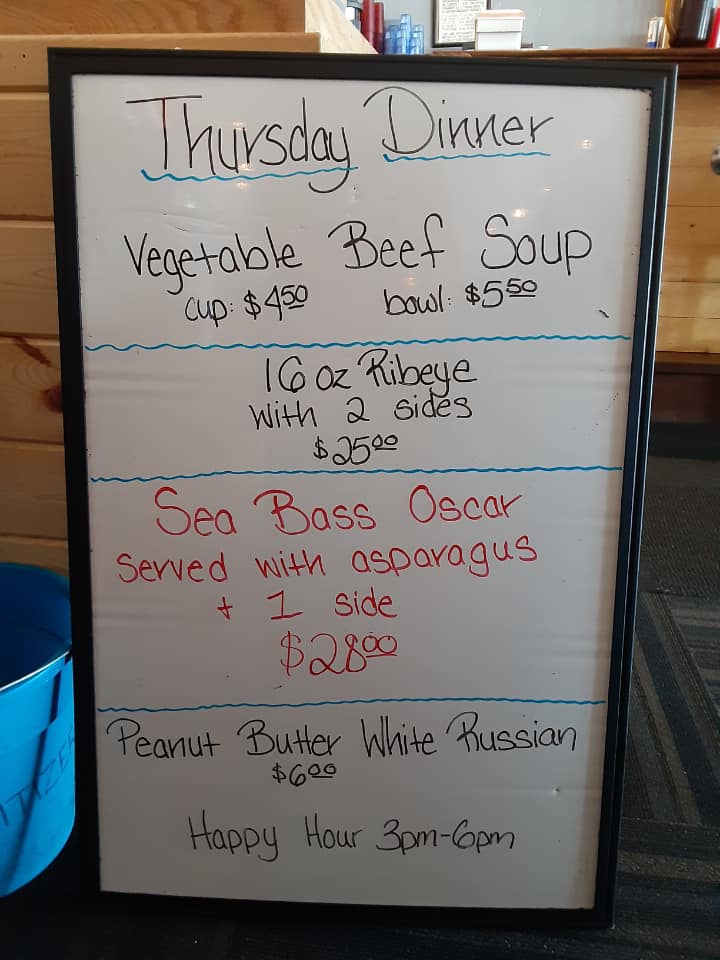 Thursday Dinner
Vegetable Beef Soup
cup: $4.50 bowl: $5.50
16 oz Ribeye
with 2 sides
$25.00
Sea Bass Oscar
Served with asparagus
+ 1 side
$28.00
Peanut Butter White Russian
$6.00
Happy Hour 3pm-6pm